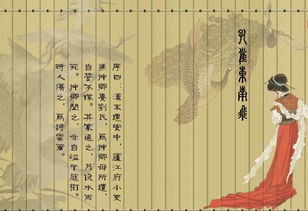 孔雀東南飛
序曰：漢末建安中，廬江府小吏
焦仲卿妻劉氏，為仲卿母所遣，
自誓不嫁。其家逼之，乃投水而
死。仲卿聞之，亦自縊于庭樹。
時人傷之，為詩云爾。